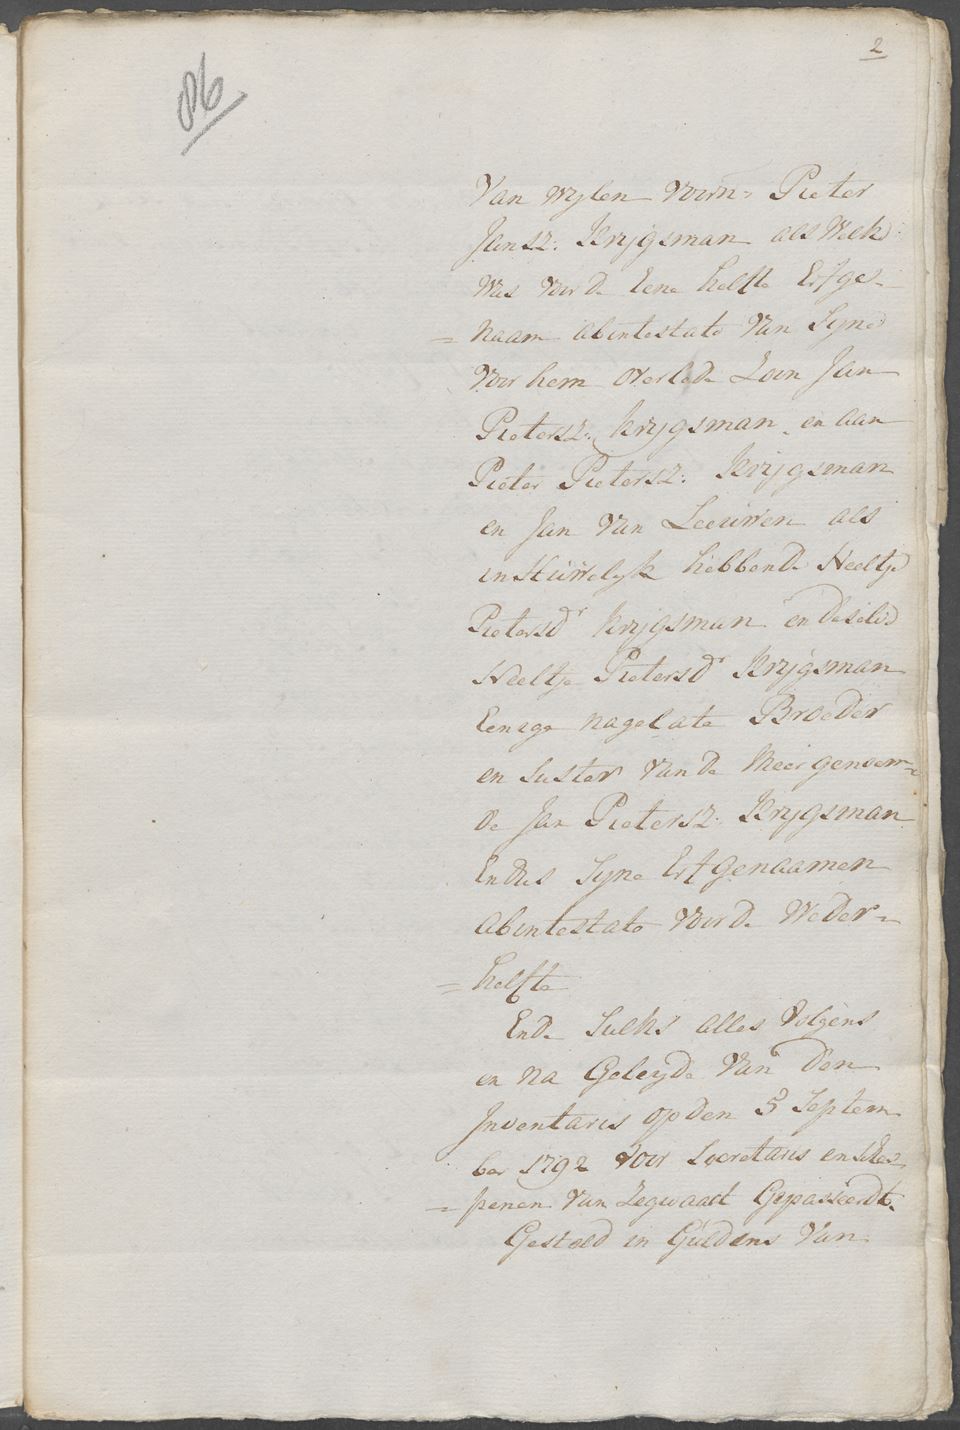 2
86
Van wylen voorn: Pieter
Jansz: Krijgsman als Welke
Was voor de Eene helfte Erfge-
= naam abintestato Van Syne
voor hem overlede Zoon Jan
Pietersz: Krijgsman, en aan
Pieter Pietersz: Krijgsman
en Jan Van Leeuwen als
in Huwelyk hebbende Neeltje
Pietersdr Krijgsman en deselve
Neeltje Pietersdr Krijgsman
Eenige nagelate Broeder
en Suster van de Meergenoem=
de Jan Pietersz: Krijgsman
En dus Syne Erfgenaamen
abintestato voor de Weder=
= helfte
Ende Sulks alles Volgens
en na Geleyde Van den
Inventaris op den 5 Septem
ber 1792 voor Secretaris en Sche=
= penen Van Zegwaart Gepasseerdt.
Gesteld in Guldens Van